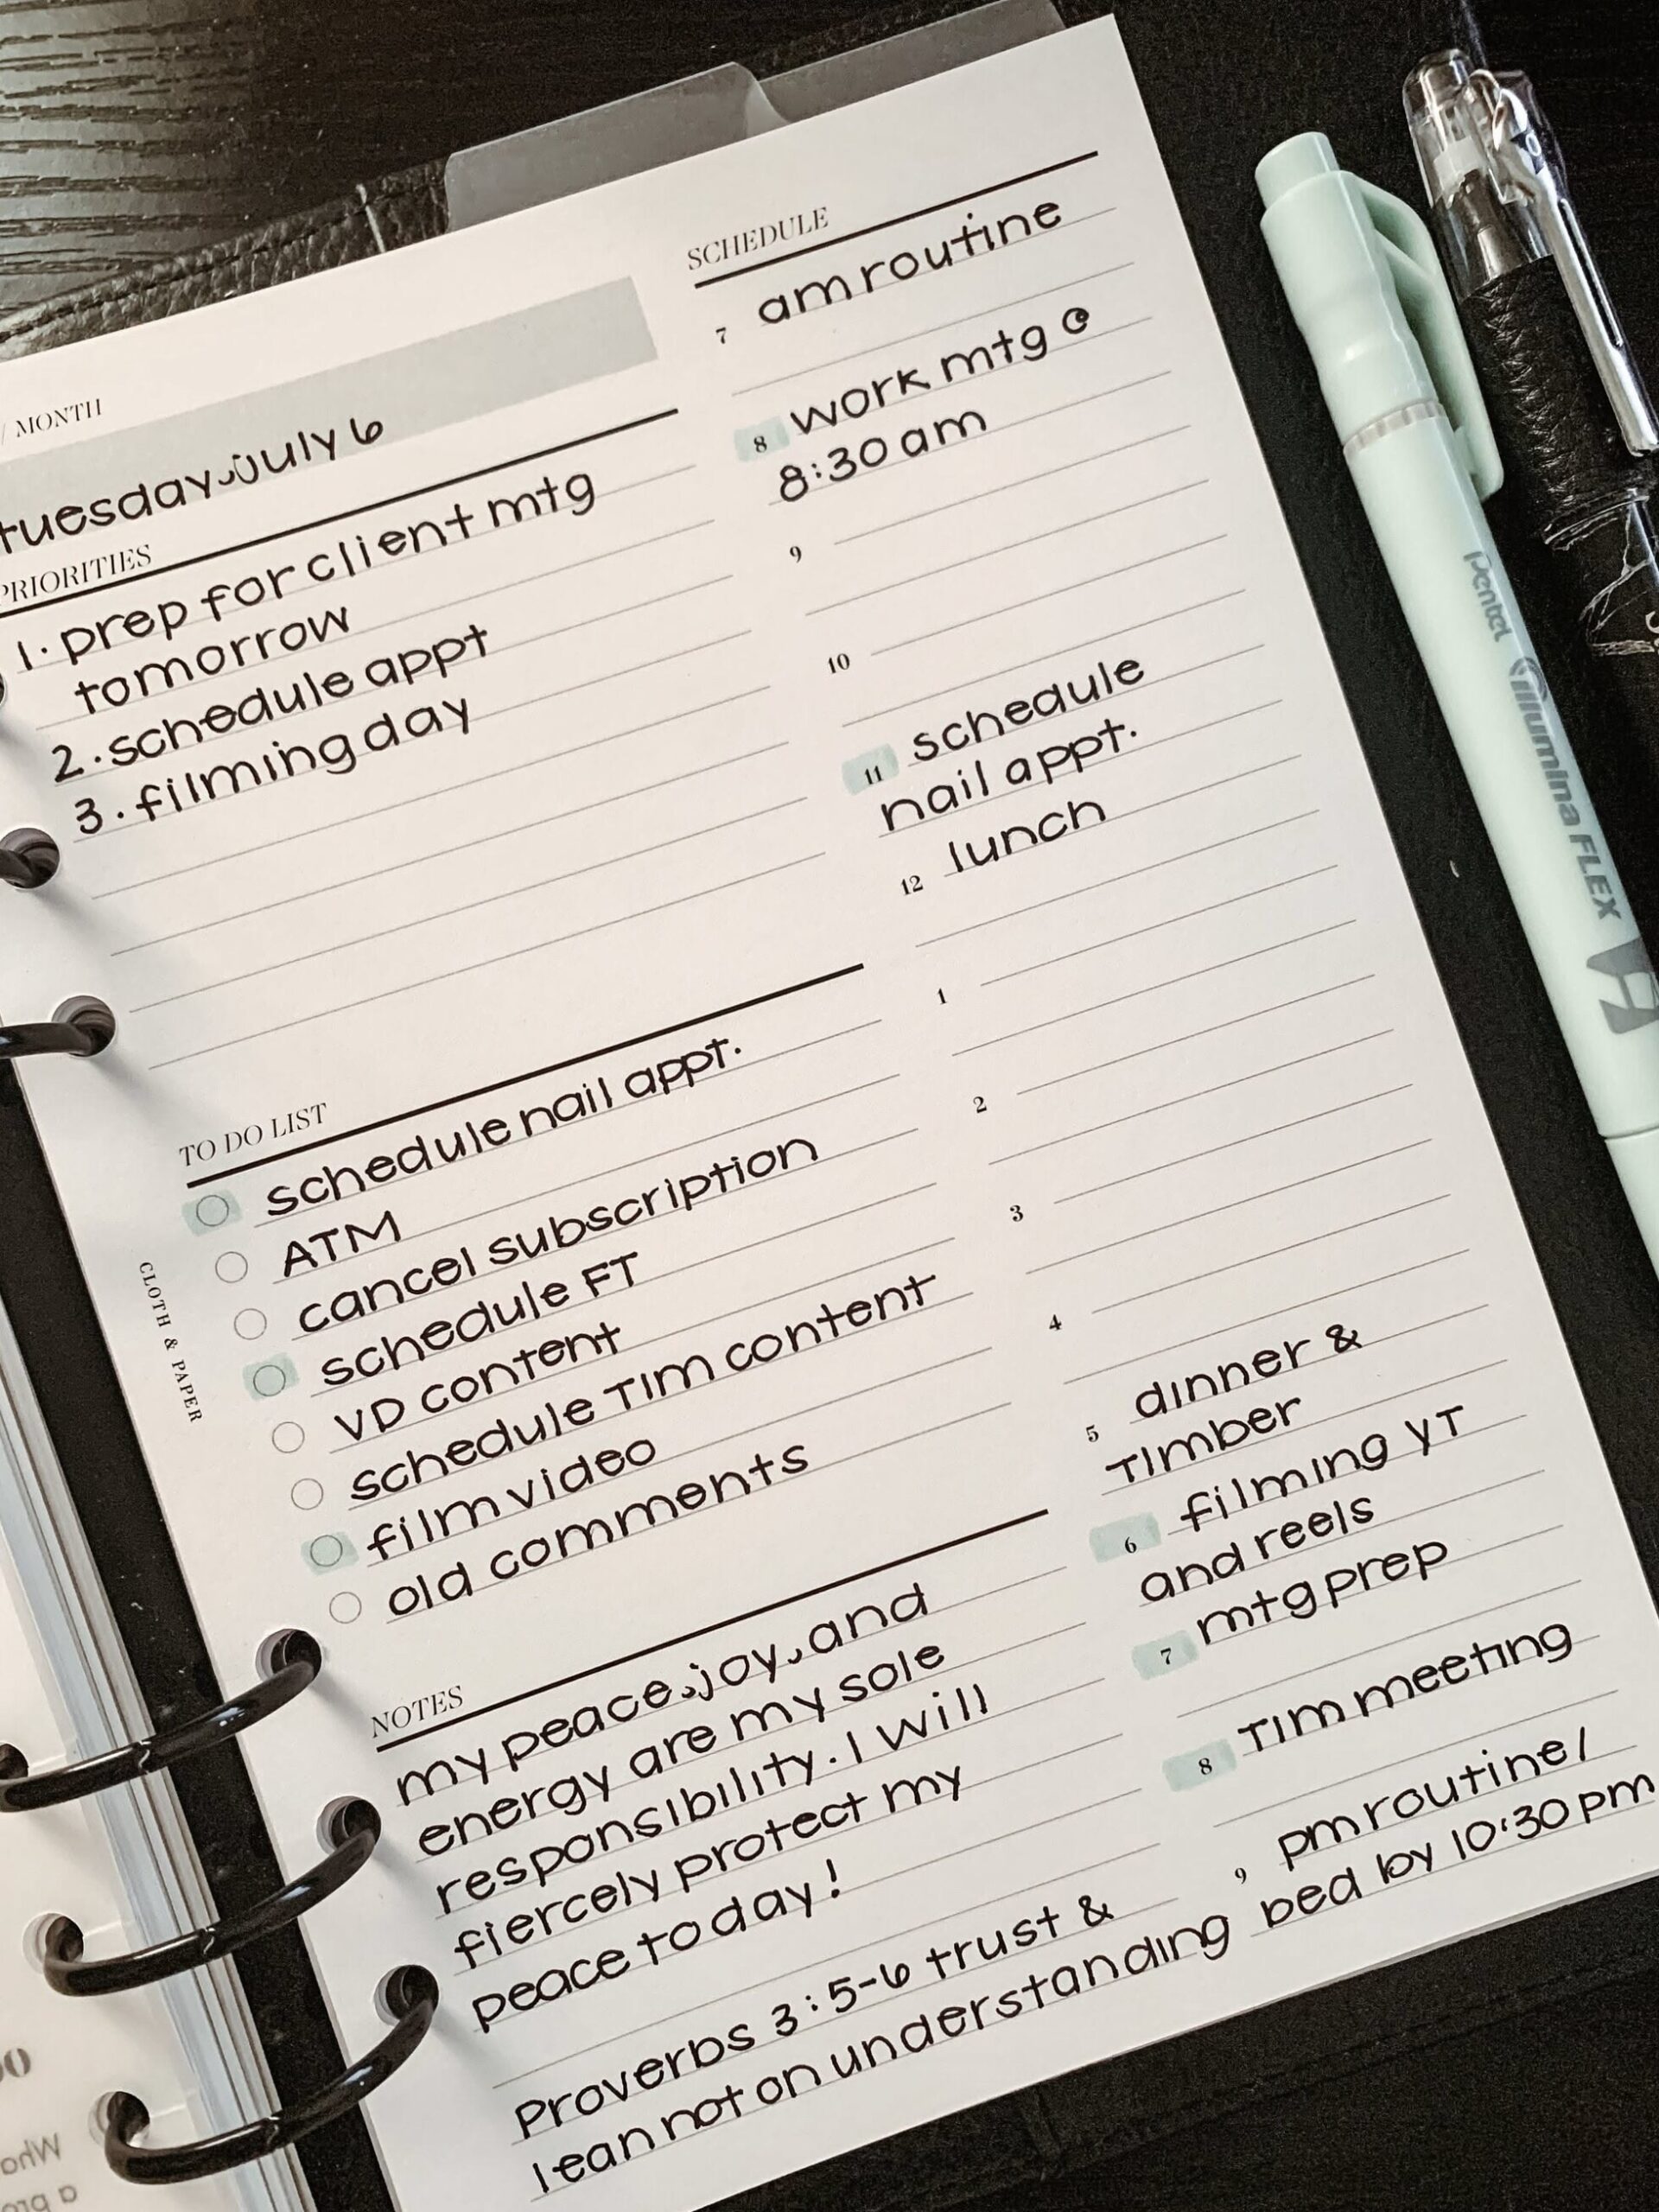 / MONTH
tuesday, July 6
PRIORITIES
1. prep for client mtg
tomorrow
2. schedule appt
3. filming day
TO DO LIST
schedule nail appt.
ATM
cancel subscription
schedule FT
VD content
schedule TIM content
film video
old comments
NOTES
my peace, joy, and
energy are my sole
responsibility. I will
fiercely protect my
peace today!
Proverbs 3:5-6 trust &
lean not on understanding
SCHEDULE
7 am routine
8 work mtg @
8:30 am
9
10
11 schedule
nail appt.
12 lunch
1
2
3
4
5 dinner &
Timber
6 filming YT
and reels
7 mtg prep
8 TIM meeting
9 pm routine/
bed by 10:30pm
CLOTH & PAPER
Pentel
illumina FLEX